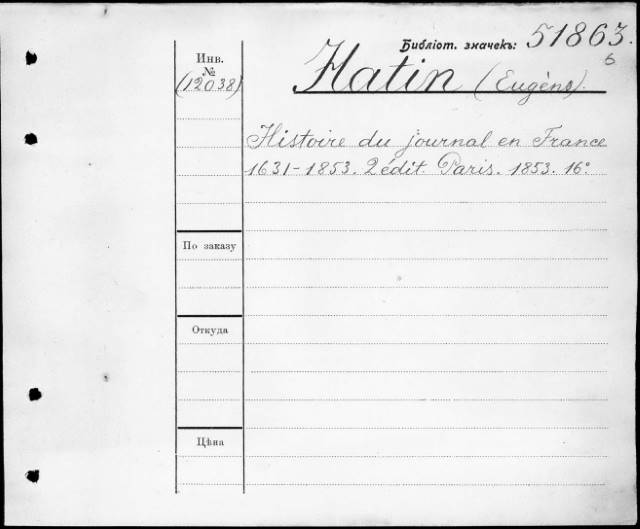 Библіот. значекъ: 51863.
б
Инв.
№
(12038)
Hatin (Eugène).
Histoire du journal en France
1631-1853. 2 édit. Paris. 1853. 16°
По заказу
Откуда
Цѣна